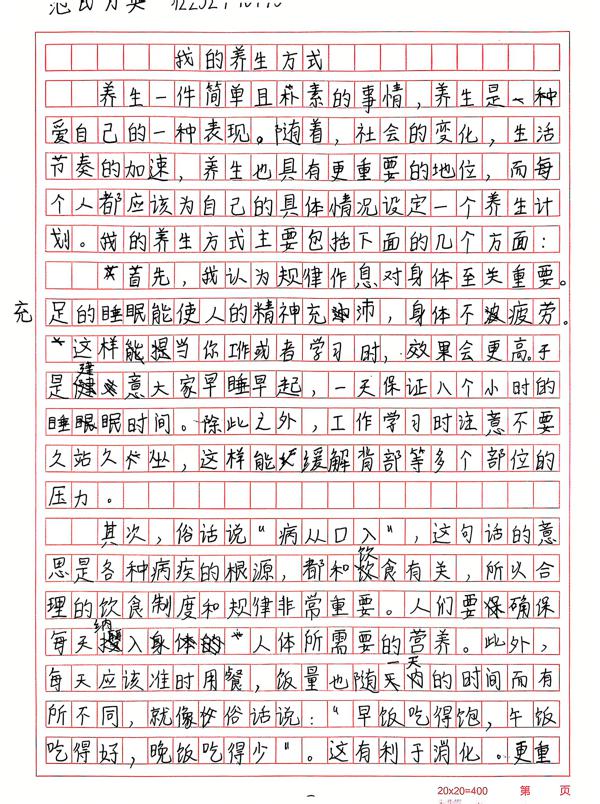 我的养生方式
养生一件简单且朴素的事情，养生是一种
爱自己的一种表现。随着，社会的变化，生活
节奏的加速，养生也具有更重要的地位，而每
个人都应该为自己的具体情况设定一个养生计
划。我的养生方式主要包括下面的几个方面：
首先，我认为规律作息对身体至关重要。
充足的睡眠能使人的精神充沛，身体不疲劳。
这样能提当你工作或者学习时，效果会更高。于
是建意大家早睡早起，一天保证八个小时的
睡眠眠时间。除此之外，工作学习时注意不要
久站久坐，这样能缓解背部等多个部位的
压力。
其次，俗话说“病从口入”，这句话的意
思是各种病疾的根源，都和饮食有关，所以合
理的饮食制度和规律非常重要。人们要确保
每天纳入人体所需要的营养。此外，
每天应该准时用餐，饭量也随一天内的时间而有
所不同，就像俗话说：“早饭吃得饱，午饭
吃得好，晚饭吃得少”。这有利于消化。更重
20x20=400 第 页